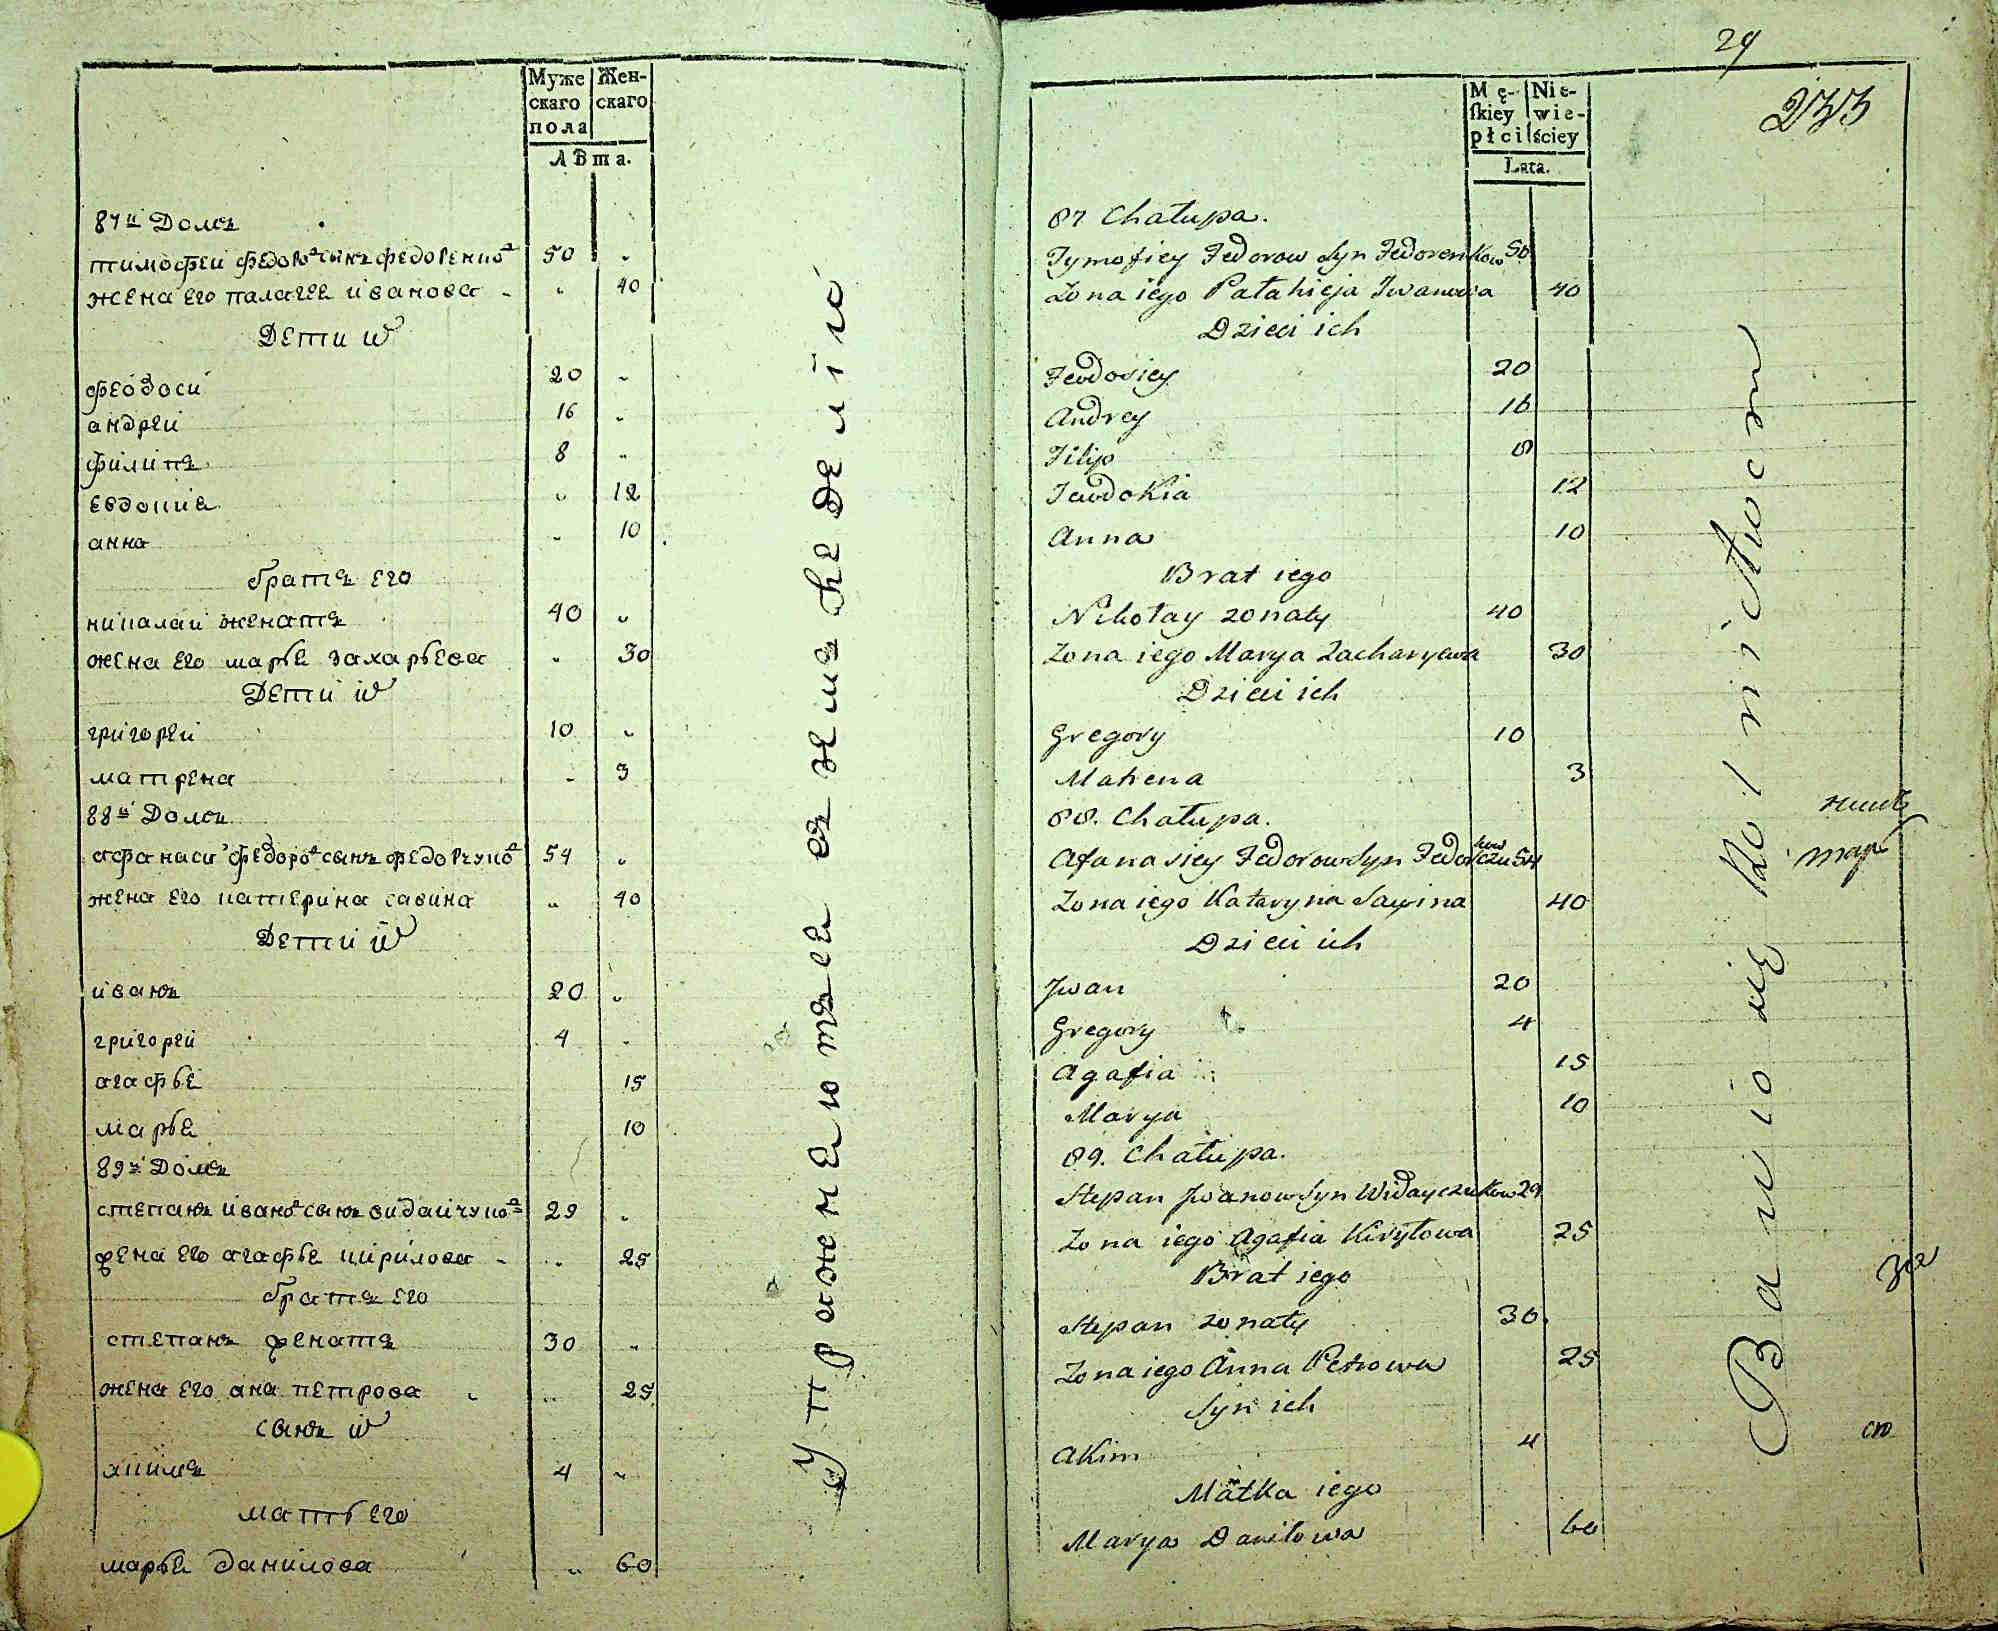 Муже Жен-
скаго скаго
пола
лѣта.
87й Домъ
тимофеи федоровъ сынъ федоренковъ 50 "
жена его палагея иванова " 40
Дети их
феодоси 20 "
андреи 16 "
филипъ 8 "
евдокия " 12
анна " 10
братъ его
никалаи женатъ 40 "
жена его марья захарьева " 30
Дети их
григореи 10 "
матрена " 3
88й Домъ
афанаси федоровъ сынъ федорчуковъ 54 "
жена его катерина савина " 40
Дети их
иванъ 20 "
григореи 4 "
агафья 15
марья 10
89й Домъ
степанъ ивановъ сынъ видаичуковъ 29 "
жена его агафья кирилова " 25
братъ его
степанъ женатъ 30 "
жена его ана петрова " 25
сынъ их
акимъ 4 "
мать его
марья данилова " 60
Упражняютъся въ земледелию
29
233
Mę- Nie-
ſkiey wie-
płci ściey
Lata.
87 Chałupa.
Tymofiey Fedorow Syn Fedorenkow 50
Zona iego Pałahieja Iwanowa 40
Dzieci ich
Feodosiey 20
Andrey 16
Filip 8
Jewdokia 12
Anna 10
Brat iego
Nikołay zonaty 40
Zona iego Marya Zacharyewa 30
Dzieci ich
Gregory 10
Matrena 3
88. Chałupa.
Afanasiey Fedorow Syn Fedorczukow 54
Zona iego Kataryna Sawina 40
Dzieci ich
Iwan 20
Gregory 4
Agafia 15
Marya 10
89. Chałupa.
Stepan Iwanow Syn Widayczukow 29
Zona iego Agafia Kiryłowa 25
Brat iego
Stepan zonaty 30
Zona iego Anna Petrowa 25
Syn ich
Akim 4
Matka iego
Marya Daniłowa 60
Bawio się Rolnictwem